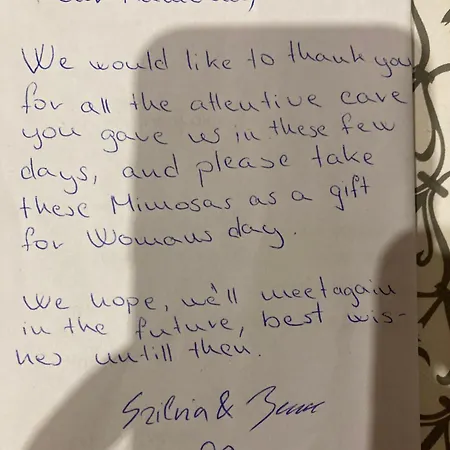 We would like to thank you
for all the attentive care
you gave us in these few
days, and please take
these Mimosas as a gift
for Womans day.
We hope, we'll meet again
in the future, best wis-
hes untill then.
Szilvia &